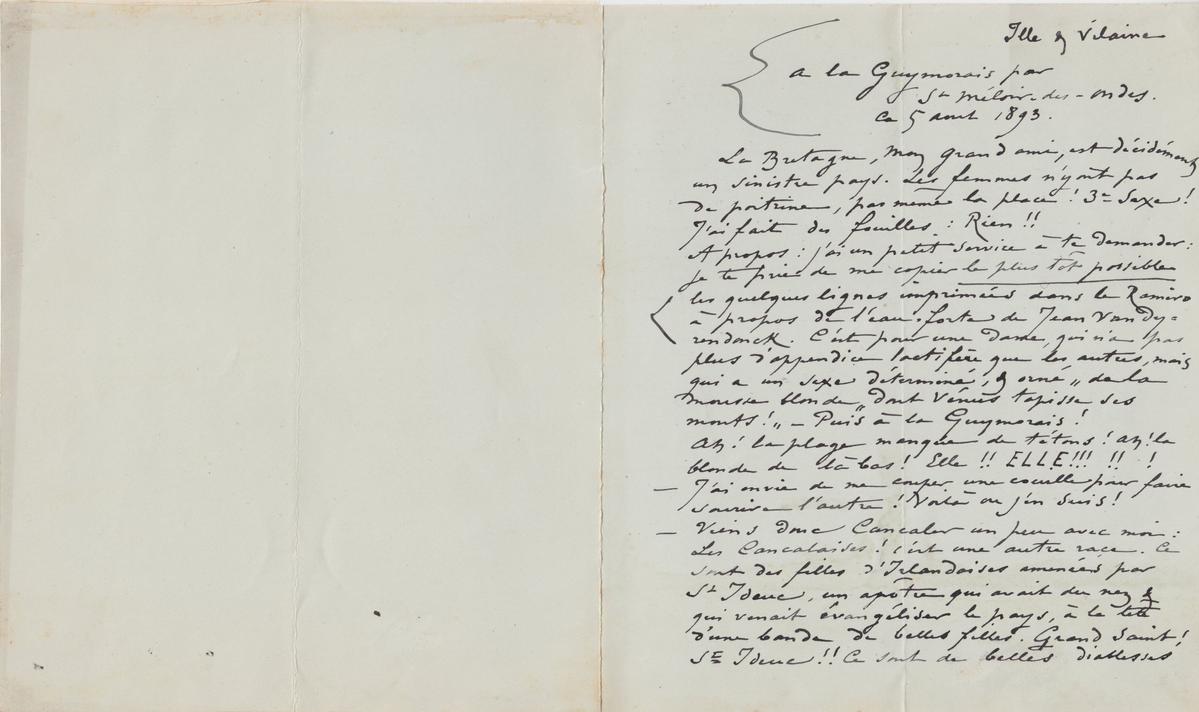 Ille & Vilaine
a la Guymorais par
St Méloir-des-ondes.
Ce 5 aout 1893.
La Bretagne, mon grand ami, est décidément
un sinistre pays. Les femmes n'y ont pas
de poitrine, pas même la place ! 3e Sexe !
J'ai fait des fouilles : Rien !!
A propos : j'ai un petit service à te demander :
je te prie de me copier le plus tôt possible
les quelques lignes imprimées dans le Ramiro
à propos de l'eau-forte de Jean Van Dy=
rendonck. C'est pour une Dame, qui n'a pas
plus d'appendice lactifère que les autres, mais
qui a un sexe déterminé, & orné „ de la
mousse blonde „ dont Vénus tapisse ses
monts ! „ – Puis à la Guymorais !
Ah ! la plage manque de tétons ! ah ! la
blonde de là bas ! Elle !! ELLE !!! !! !
— J'ai envie de me couper une couille pour faire
sourire l'autre ! Voilà ou j'en suis !
— Viens donc Cancaler un peu avec moi :
Les Cancalaises ! c'est une autre race. Ce
sont des filles d'Irlandaises amenées par
St Ideuc, un apôtre qui avait du nez &
qui venait évangéliser le pays, à la tête
d'une bande de belles filles. Grand Saint !
St Ideuc !! Ce sont de belles diablesses